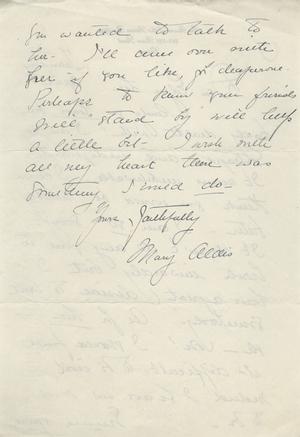 you wanted to talk to
her - I'll come over with
her if you like, for chaperone.
Perhaps to know your friends
will stand by will help
a little bit - I wish with
all my heart there was
something I could do -
Yours faithfully
Mary Aldis